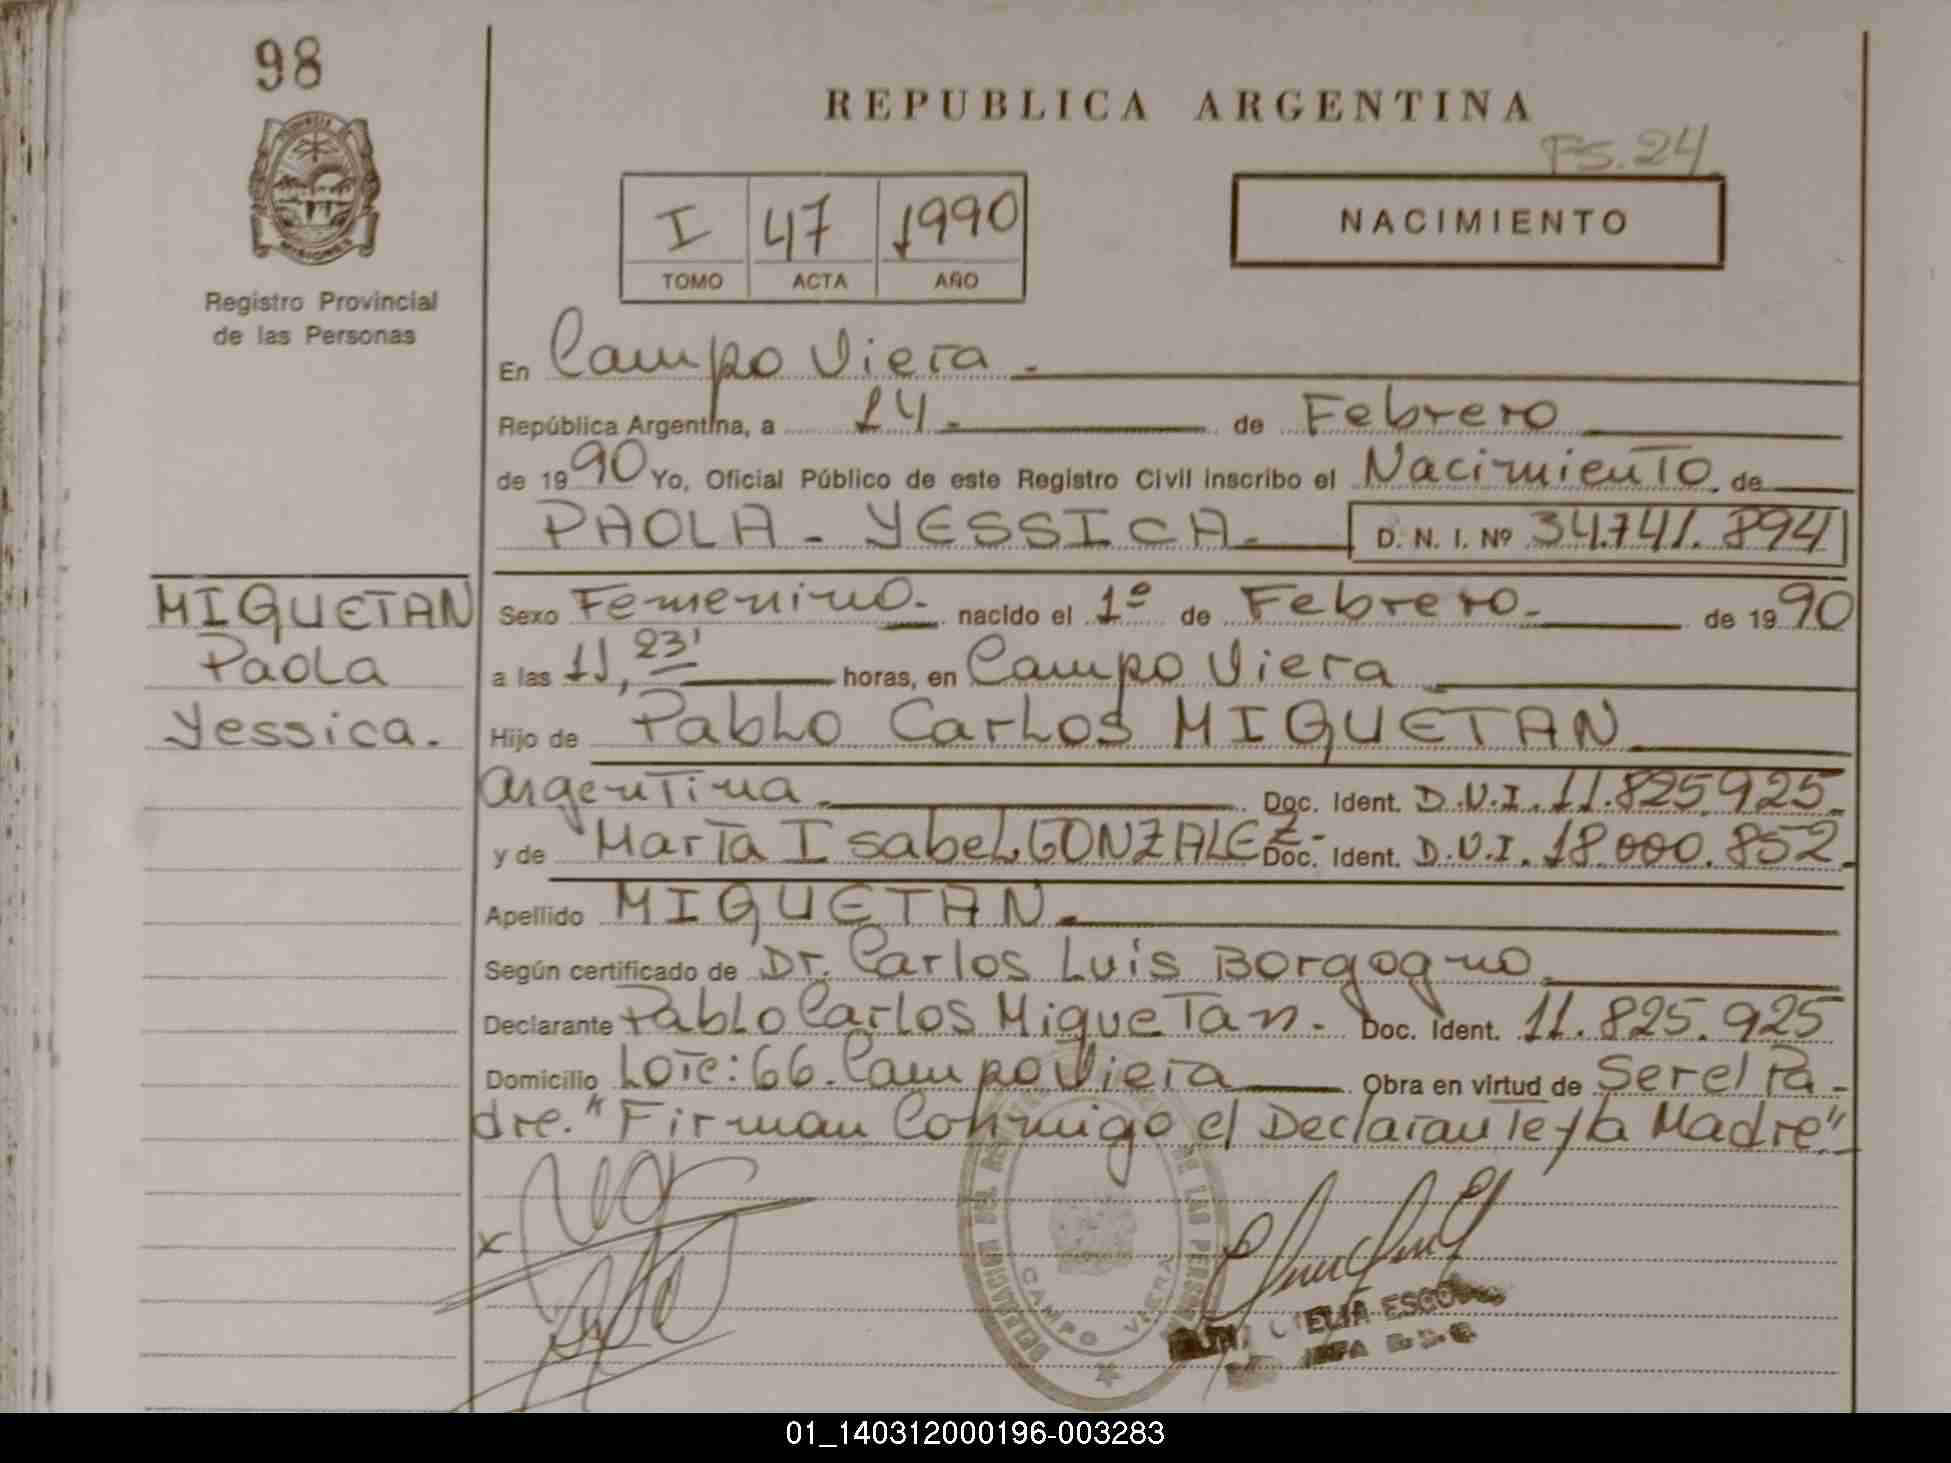 98
REPUBLICA ARGENTINA
FS. 24
I 47 1990
TOMO ACTA AÑO
NACIMIENTO
Registro Provincial
de las Personas
En Campo Viera.-
República Argentina, a 14.- de Febrero
de 1990 Yo, Oficial Público de este Registro Civil inscribo el Nacimiento de
PAOLA - YESSICA.- D. N. I. Nº 34.741.894
MIQUETAN
Paola
Yessica.
Sexo Femenino.- nacido el 1º de Febrero.- de 1990
a las 11, 23' horas, en Campo Viera
Hijo de Pablo Carlos MIQUETAN
Argentina.- Doc. Ident. D.N.I. 11.825.925.
y de Marta Isabel GONZALEZ.- Doc. Ident. D.N.I. 18.000.852.
Apellido MIQUETAN.-
Según certificado de Dr. Carlos Luis Borgogno
Declarante Pablo Carlos Miquetan.- Doc. Ident. 11.825.925
Domicilio Lote: 66. Campo Viera Obra en virtud de Ser el Pa-
dre." Firman Conmigo el Declarante y la Madre"
DELEGACION DEL REG DE LAS PERSONAS
CAMPO VIERA
ELIA ESCO
JEFA
01_140312000196-003283